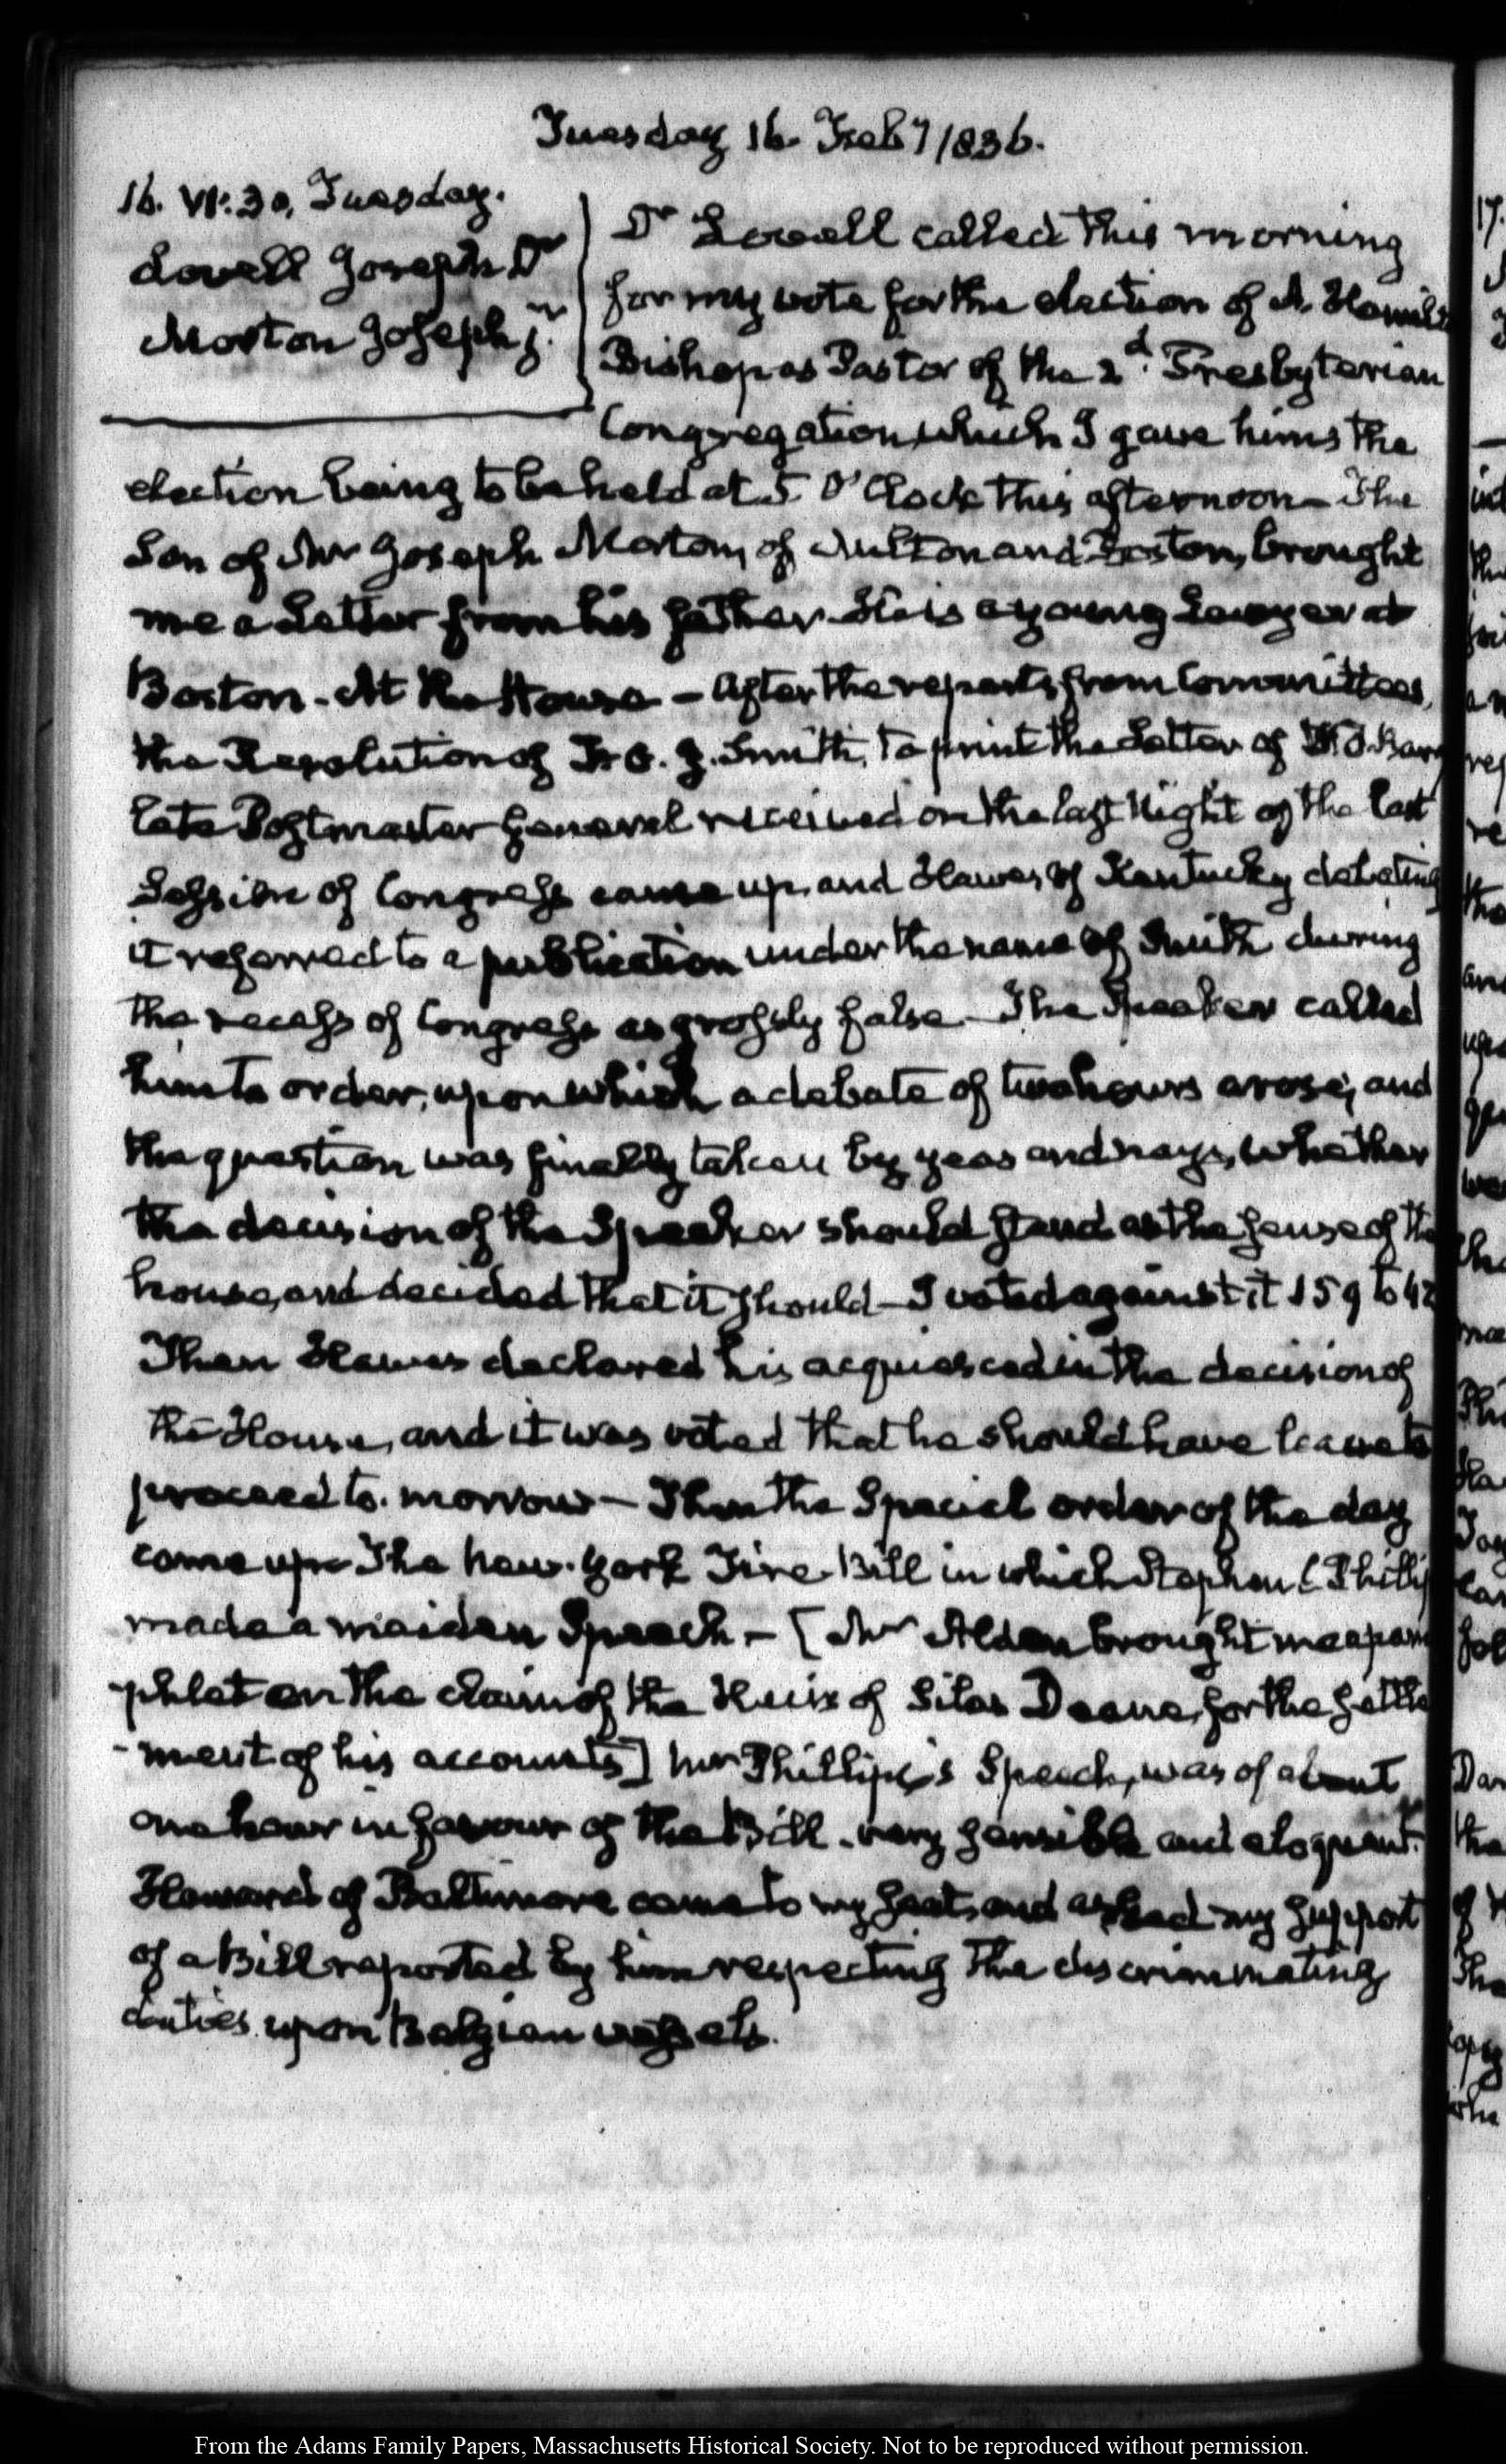 Tuesday 16. Feby 1836.
16. VI:30. Tuesday.
Lovell Joseph Dr
Morton Joseph jr
Dr Lovell called this morning
for my vote for the election of A. Hamil
Bishop as Pastor of the 2d. Presbyterian
Congregation, which I gave him; the
election being to be held at 5 O'Clock this afternoon— The
Son of Mr Joseph Morton, of Milton and Boston, brought
me a Letter from his father. He is a young Lawyer at
Boston. At the House— After the reports from Committees,
the Resolution of F. O. J. Smith, to print the Letter of W. T. Barry
late Postmaster General received on the last Night of the last
Session of Congress came up, and Hawes of Kentucky debating
it referred to a publication under the name of Smith during
the recess of Congress as grossly false. The Speaker called
him to order, upon which a debate of two hours arose, and
the question was finally taken by yeas and nays, whether
the decision of the Speaker should stand as the sense of the
house, and decided that it should— I voted against it 159 to 42
Then Hawes declared his acquiesced in the decision of
the House, and it was voted that he should have leave to
proceed to-morrow— Then the Special order of the day
came up. The New-York Fire-Bill in which Stephen C Phillip
made a maiden Speech.— [Mr Alden brought me a pam
-phlet on the claim of the Heirs of Silas Deane, for the settle
-ment of his accounts] Mr Phillips's Speech, was of about
one hour in favour of the Bill. very sensible and eloquent.
Howard of Baltimore came to my seat, and asked my support
of a Bill reported by him respecting the discriminating
duties upon Belgian vessels.
From the Adams Family Papers, Massachusetts Historical Society. Not to be reproduced without permission.